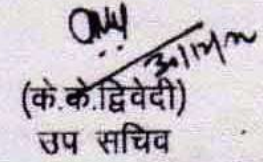 (के.के.द्विवेदी)
उप सचिव